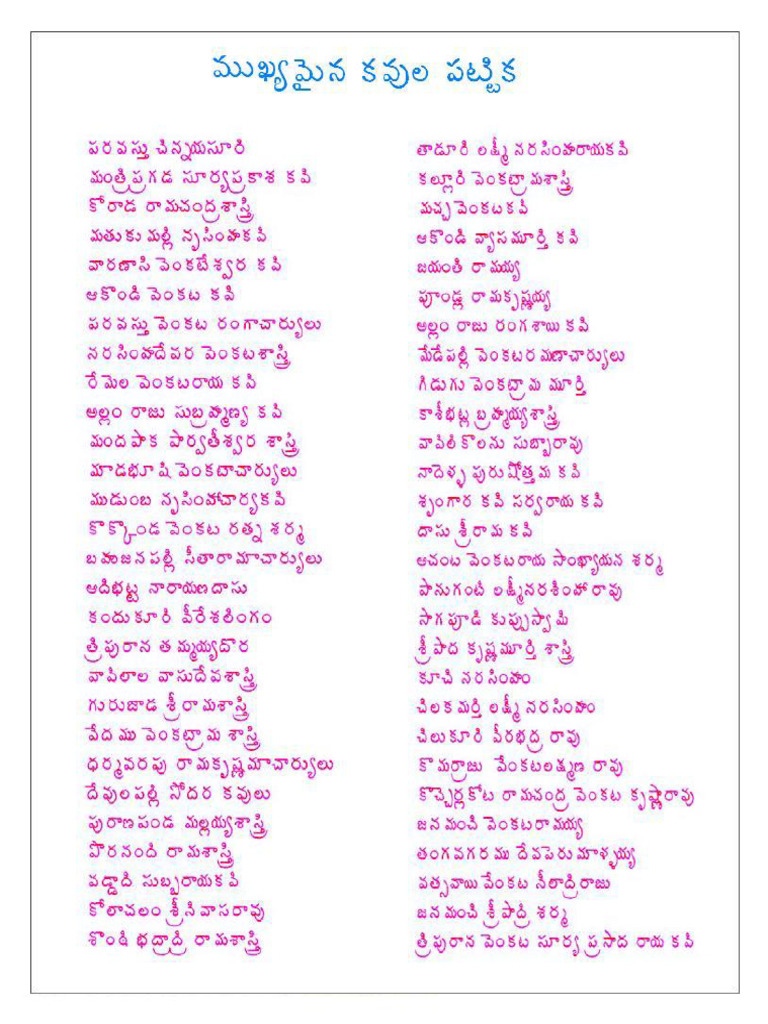 ముఖ్యమైన కవుల పట్టిక
పరవస్తు చిన్నయసూరి
మంత్రిప్రగడ సూర్యప్రకాశ కవి
కోరాడ రామచంద్రశాస్త్రి
మతుకుమల్లి నృసింహకవి
వారణాసి వెంకటేశ్వర కవి
ఆకొండి వెంకట కవి
పరవస్తు వెంకట రంగాచార్యులు
నరసింహదేవర వెంకటశాస్త్రి
రేమెల వెంకటరాయ కవి
అల్లం రాజు సుబ్రహ్మణ్య కవి
మందపాక పార్వతీశ్వర శాస్త్రి
మాడభూషి వెంకటాచార్యులు
ముడుంబ నృసింహాచార్యకవి
కొక్కొండ వెంకట రత్న శర్మ
బహుజనపల్లి సీతారామాచార్యులు
ఆదిభట్ట నారాయణదాసు
కందుకూరి వీరేశలింగం
త్రిపురాన తమ్మయ్యదొర
వావిలాల వాసుదేవశాస్త్రి
గురుజాడ శ్రీరామశాస్త్రి
వేదము వెంకట్రామ శాస్త్రి
ధర్మవరపు రామకృష్ణమాచార్యులు
దేవులపల్లి సోదర కవులు
పురాణపండ మల్లయ్యశాస్త్రి
పొరనంది రామశాస్త్రి
వడ్డాది సుబ్బరాయకవి
కోలాచలం శ్రీనివాసరావు
శొంఠి భద్రాద్రి రామశాస్త్రి
తాడూరి లక్ష్మీ నరసింహరాయకవి
కల్లూరి వెంకట్రామశాస్త్రి
మచ్చ వెంకటకవి
ఆకొండి వ్యాసమూర్తి కవి
జయంతి రామయ్య
పూండ్ల రామకృష్ణయ్య
అల్లం రాజు రంగశాయి కవి
మేడేపల్లి వెంకటరమణాచార్యులు
గిడుగు వెంకట్రామ మూర్తి
కాశీభట్ల బ్రహ్మయ్యశాస్త్రి
వావిలికొలను సుబ్బారావు
నాదెళ్ళ పురుషోత్తమ కవి
శృంగార కవి సర్వరాయ కవి
దాసు శ్రీరామ కవి
ఆచంట వెంకటరాయ సాంఖ్యాయన శర్మ
పానుగంటి లక్ష్మీనరశింహారావు
సాగపూడి కుప్పుస్వామి
శ్రీపాద కృష్ణమూర్తి శాస్త్రి
కూచి నరసింహం
చిలకమర్తి లక్ష్మీ నరసింహం
చిలుకూరి వీరభద్ర రావు
కొమర్రాజు వేంకటలక్ష్మణ రావు
కొచ్చెర్లకోట రామచంద్ర వెంకట కృష్ణారావు
జనమంచి వెంకటరామయ్య
తంగవగరము దేవపెరుమాళ్ళయ్య
వత్సవాయి వేంకట నీలాద్రిరాజు
జనమంచి శ్రీపాద్రి శర్మ
త్రిపురాన వెంకట సూర్య ప్రసాద రాయ కవి